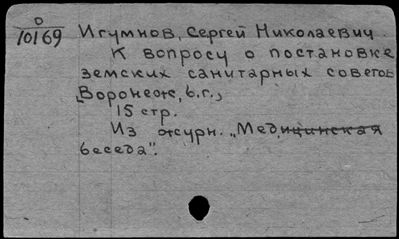 О
10169
Игумнов, Сергей Николаевич
К вопросу о постановке
земских санитарных советов
Воронеж, б.г.,
15 стр.
Из журн. „Медицинская
беседа".